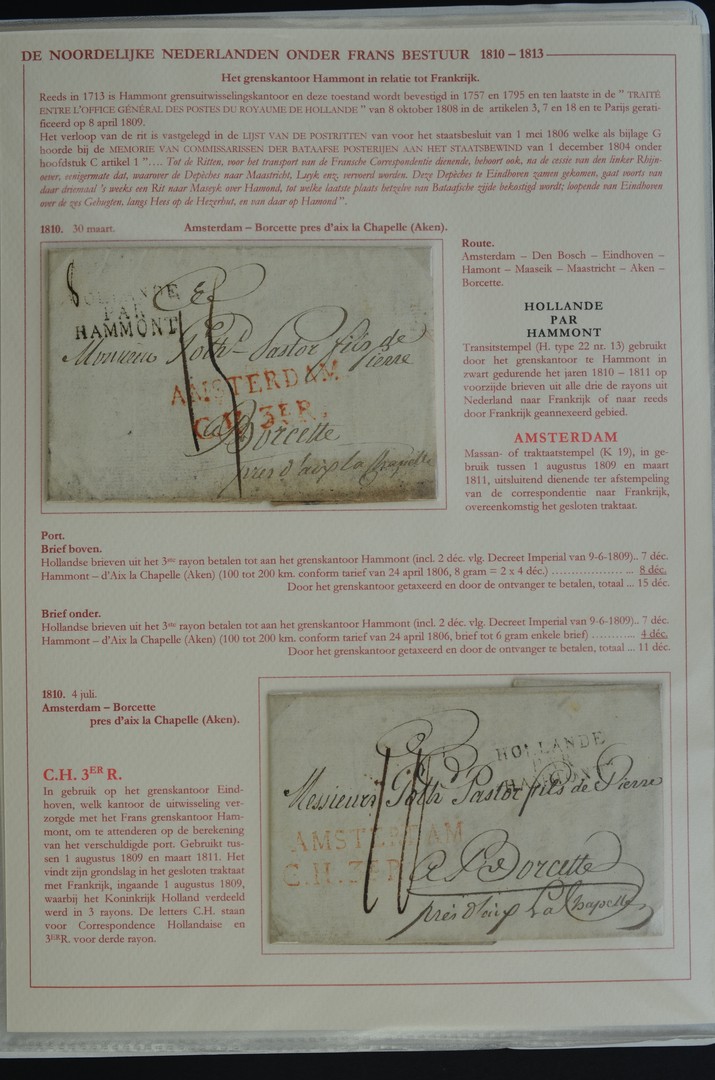 DE NOORDELIJKE NEDERLANDEN ONDER FRANS BESTUUR 1810 – 1813
Het grenskantoor Hammont in relatie tot Frankrijk.
Reeds in 1713 is Hammont grensuitwisselingskantoor en deze toestand wordt bevestigd in 1757 en 1795 en ten laatste in de " TRAITÉ
ENTRE L'OFFICE GÉNÉRAL DES POSTES DU ROYAUME DE HOLLANDE " van 8 oktober 1808 in de artikelen 3, 7 en 18 en te Parijs gerati-
ficeerd op 8 april 1809.
Het verloop van de rit is vastgelegd in de LIJST VAN DE POSTRITTEN van voor het staatsbesluit van 1 mei 1806 welke als bijlage G
hoorde bij de MEMORIE VAN COMMISSARISSEN DER BATAAFSE POSTERIJEN AAN HET STAATSBEWIND van 1 december 1804 onder
hoofdstuk C artikel 1 ”.... Tot de Ritten, voor het transport van de Fransche Correspondentie dienende, behoort ook, na de cessie van den linker Rhijn-
oever, eenigermate dat, waarover de Depèches naar Maastricht, Luyk enz. vervoerd worden. Deze Depèches te Eindhoven zamen gekomen, gaat voorts van
daar driemaal 's weeks een Rit naar Maseyk over Hamond, tot welke laatste plaats hetzelve van Bataafsche zijde bekostigd wordt; loopende van Eindhoven
over de zes Gehugten, langs Hees op de Hezerhut, en van daar op Hamond".
1810. 30 maart. Amsterdam – Borcette pres d'aix la Chapelle (Aken).
8
HOLLANDE
PAR
HAMMONT
Monsieur Goth. Pastor fils de
Pierre
AMSTERDAM
C.H. 3ER.
a Borcette
près d'aix la Chapelle
Route.
Amsterdam – Den Bosch – Eindhoven –
Hamont – Maaseik – Maastricht – Aken –
Borcette.
HOLLANDE
PAR
HAMMONT
Transitstempel (H. type 22 nr. 13) gebruikt
door het grenskantoor te Hammont in
zwart gedurende het jaren 1810 – 1811 op
voorzijde brieven uit alle drie de rayons uit
Nederland naar Frankrijk of naar reeds
door Frankrijk geannexeerd gebied.
AMSTERDAM
Massan- of traktaatstempel (K 19), in ge-
bruik tussen 1 augustus 1809 en maart
1811, uitsluitend dienende ter afstempeling
van de correspondentie naar Frankrijk,
overeenkomstig het gesloten traktaat.
Port.
Brief boven.
Hollandse brieven uit het 3me rayon betalen tot aan het grenskantoor Hammont (incl. 2 déc. vlg. Decreet Imperial van 9-6-1809).. 7 déc.
Hammont – d'Aix la Chapelle (Aken) (100 tot 200 km. conform tarief van 24 april 1806, 8 gram = 2 x 4 déc.) .................... ... 8 déc.
Door het grenskantoor getaxeerd en door de ontvanger te betalen, totaal ... 15 déc.
Brief onder.
Hollandse brieven uit het 3me rayon betalen tot aan het grenskantoor Hammont (incl. 2 déc. vlg. Decreet Imperial van 9-6-1809).. 7 déc.
Hammont – d'Aix la Chapelle (Aken) (100 tot 200 km. conform tarief van 24 april 1806, brief tot 6 gram enkele brief) ............ 4 déc.
Door het grenskantoor getaxeerd en door de ontvanger te betalen, totaal ... 11 déc.
1810. 4 juli.
Amsterdam – Borcette
pres d'aix la Chapelle (Aken).
C.H. 3ER R.
In gebruik op het grenskantoor Eind-
hoven, welk kantoor de uitwisseling ver-
zorgde met het Frans grenskantoor Ham-
mont, om te attenderen op de berekening
van het verschuldigde port. Gebruikt tus-
sen 1 augustus 1809 en maart 1811. Het
vindt zijn grondslag in het gesloten traktaat
met Frankrijk, ingaande 1 augustus 1809,
waarbij het Koninkrijk Holland verdeeld
werd in 3 rayons. De letters C.H. staan
voor Correspondence Hollandaise en
3ERR. voor derde rayon.
HOLLANDE
PAR
HAMMONT
Messieurs Goth Pastor fils de Pierre
AMSTERDAM
C.H. 3ER
a Borcette
près d'aix La Chapelle